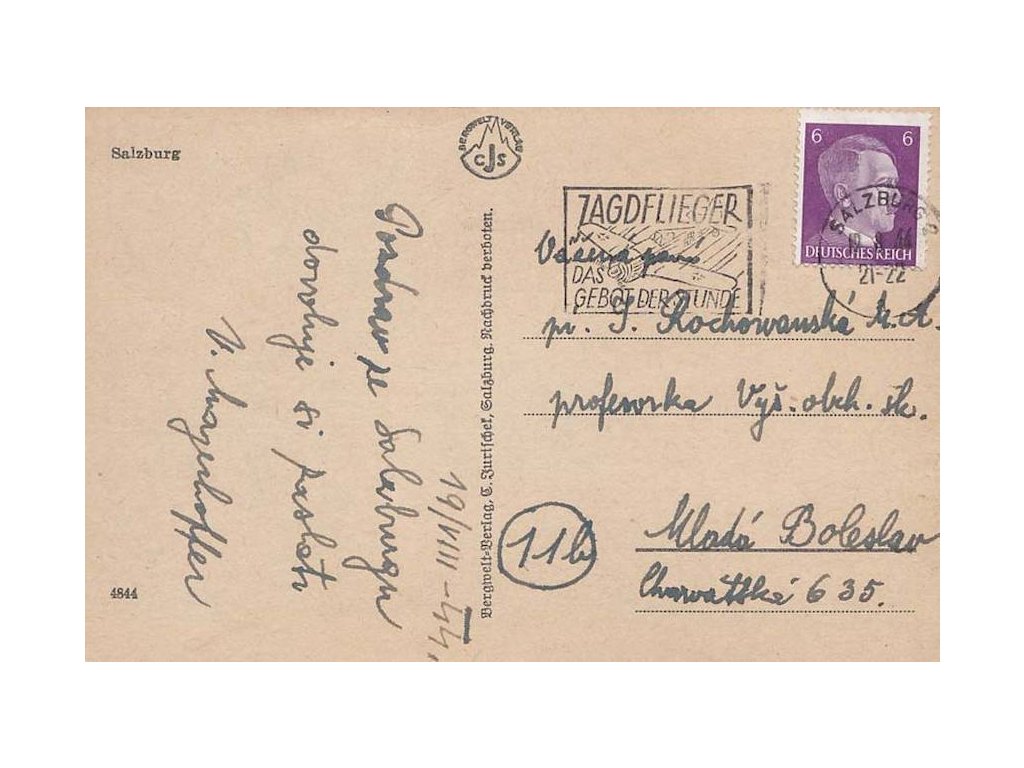 Salzburg
BERGWELT VERLAG
CJS
6 6
DEUTSCHES REICH
SALZBURG
21-22
JAGDFLIEGER
DAS
GEBOT DER STUNDE
Vážená paní
pí. J. Rochowanská
profesorka Vyš. obch. šk.
Mladá Boleslav
635.
11b
Bergwelt-Verlag, C. Jurischek, Salzburg. Nachdruck verboten.
19/VIII-44.
Pozdrav ze Salzburgu
dovoluje si zaslati
V. Mayerhoffer
4844